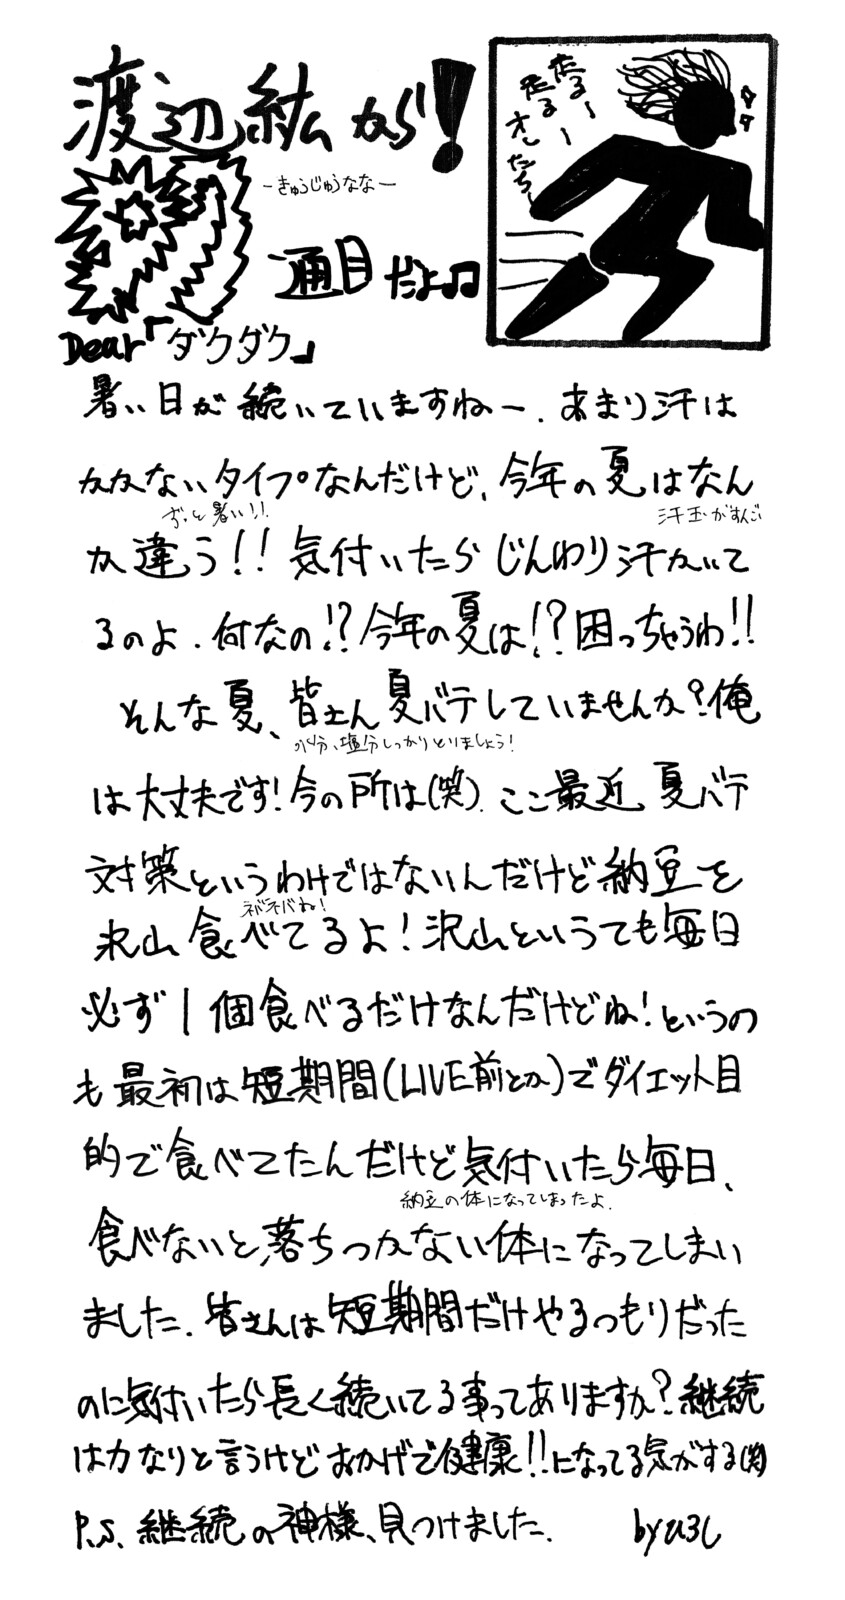 渡辺紘から!
走るー
走るー
オレたち
-きゅうじゅうなな-
97
通目だよ♫
Dear「ダクダク」
暑い日が続いていますねー。あまり汗は
かかないタイプなんだけど、今年の夏はなん
ずっと暑い!!
汗玉がすんごい
か違う!!気付いたらじんわり汗かいて
るのよ。何なの!?今年の夏は!?困っちゃうわ!!
そんな夏、皆さん夏バテしていませんか?俺
水分、塩分しっかりとりましょう!
は大丈夫です!今の所は(笑)。ここ最近夏バテ
対策というわけではないんだけど納豆を
ネバネバね!
沢山食べてるよ!沢山というても毎日
必ず1個食べるだけなんだけどね!というの
も最初は短期間(LIVE前とか)でダイエット目
的で食べてたんだけど気付いたら毎日、
納豆の体になってしまったよ。
食べないと落ちつかない体になってしまい
ました。皆さんは短期間だけやるつもりだった
のに気付いたら長く続いてる事ってありますか?継続
は力なりと言うけどおかげで健康!!になってる気がする(笑)
P.S.継続の神様、見つけました。
byひろし